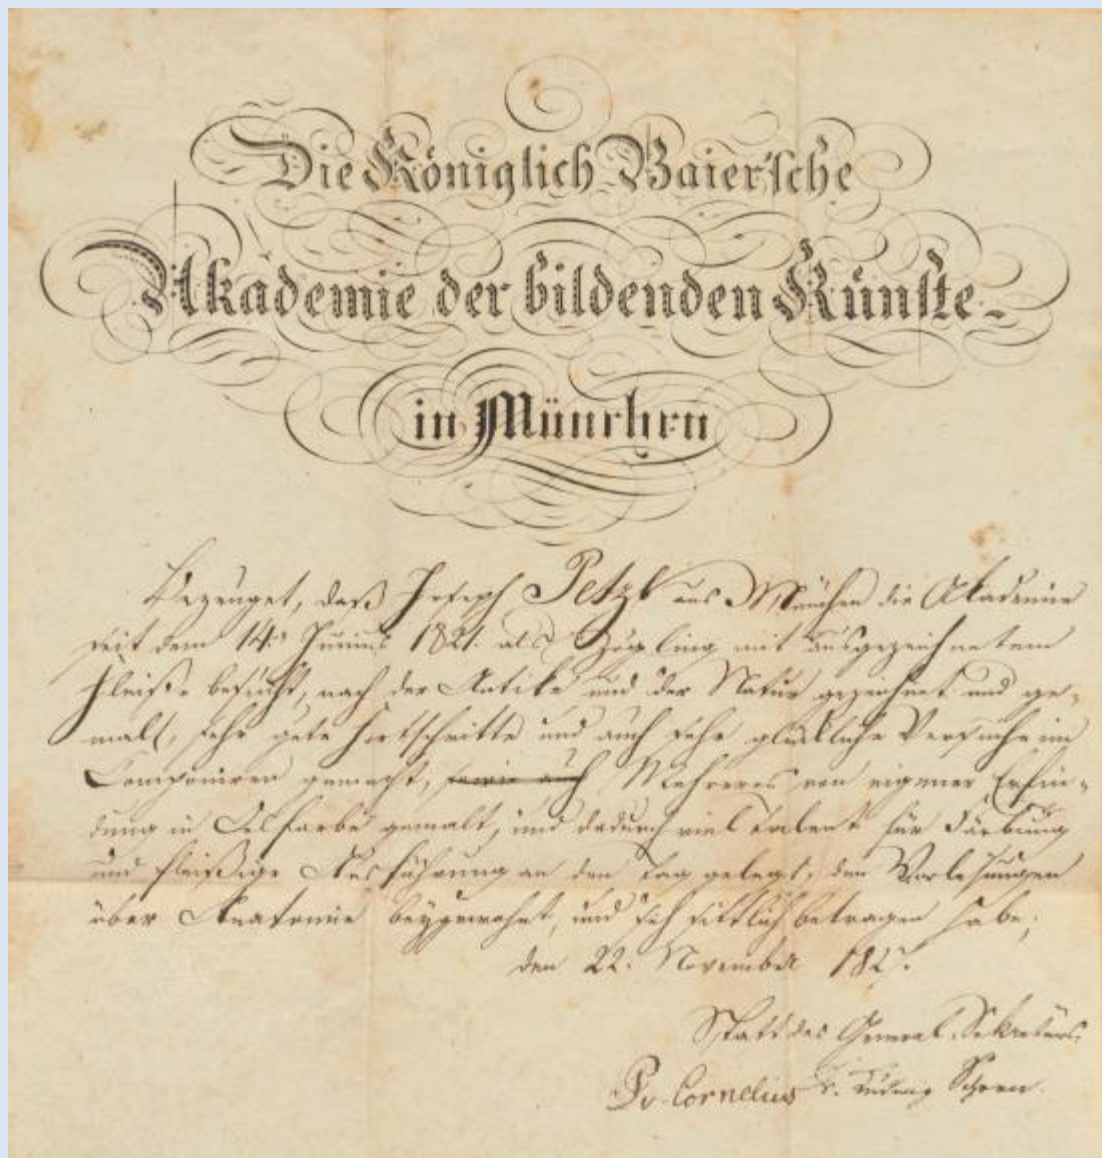 Die Königlich Baiersche
Akademie der bildenden Künste
in München
Bezeuget, daß Joseph Petzl aus München die Akademie
seit dem 14. Junius 1821. als Zögling mit ausgezeichnetem
Fleiße besucht, nach der Antike und der Natur gezeichnet und ge-
malt, sehr gute Fortschritte und auch sehr glückliche Versuche im
Componiren gemacht, Mehreres von eigener Erfin-
dung in Oelfarbe gemalt, und dadurch viel Talent für Färbung
und fleißige Ausführung an den Tag gelegt, den Vorlesungen
über Anatomie beygewohnt, und sich sittlich betragen habe;
den 22. November
Statt des General-Sekretärs
P. v. Cornelius Dr. Ludwig Schorn.